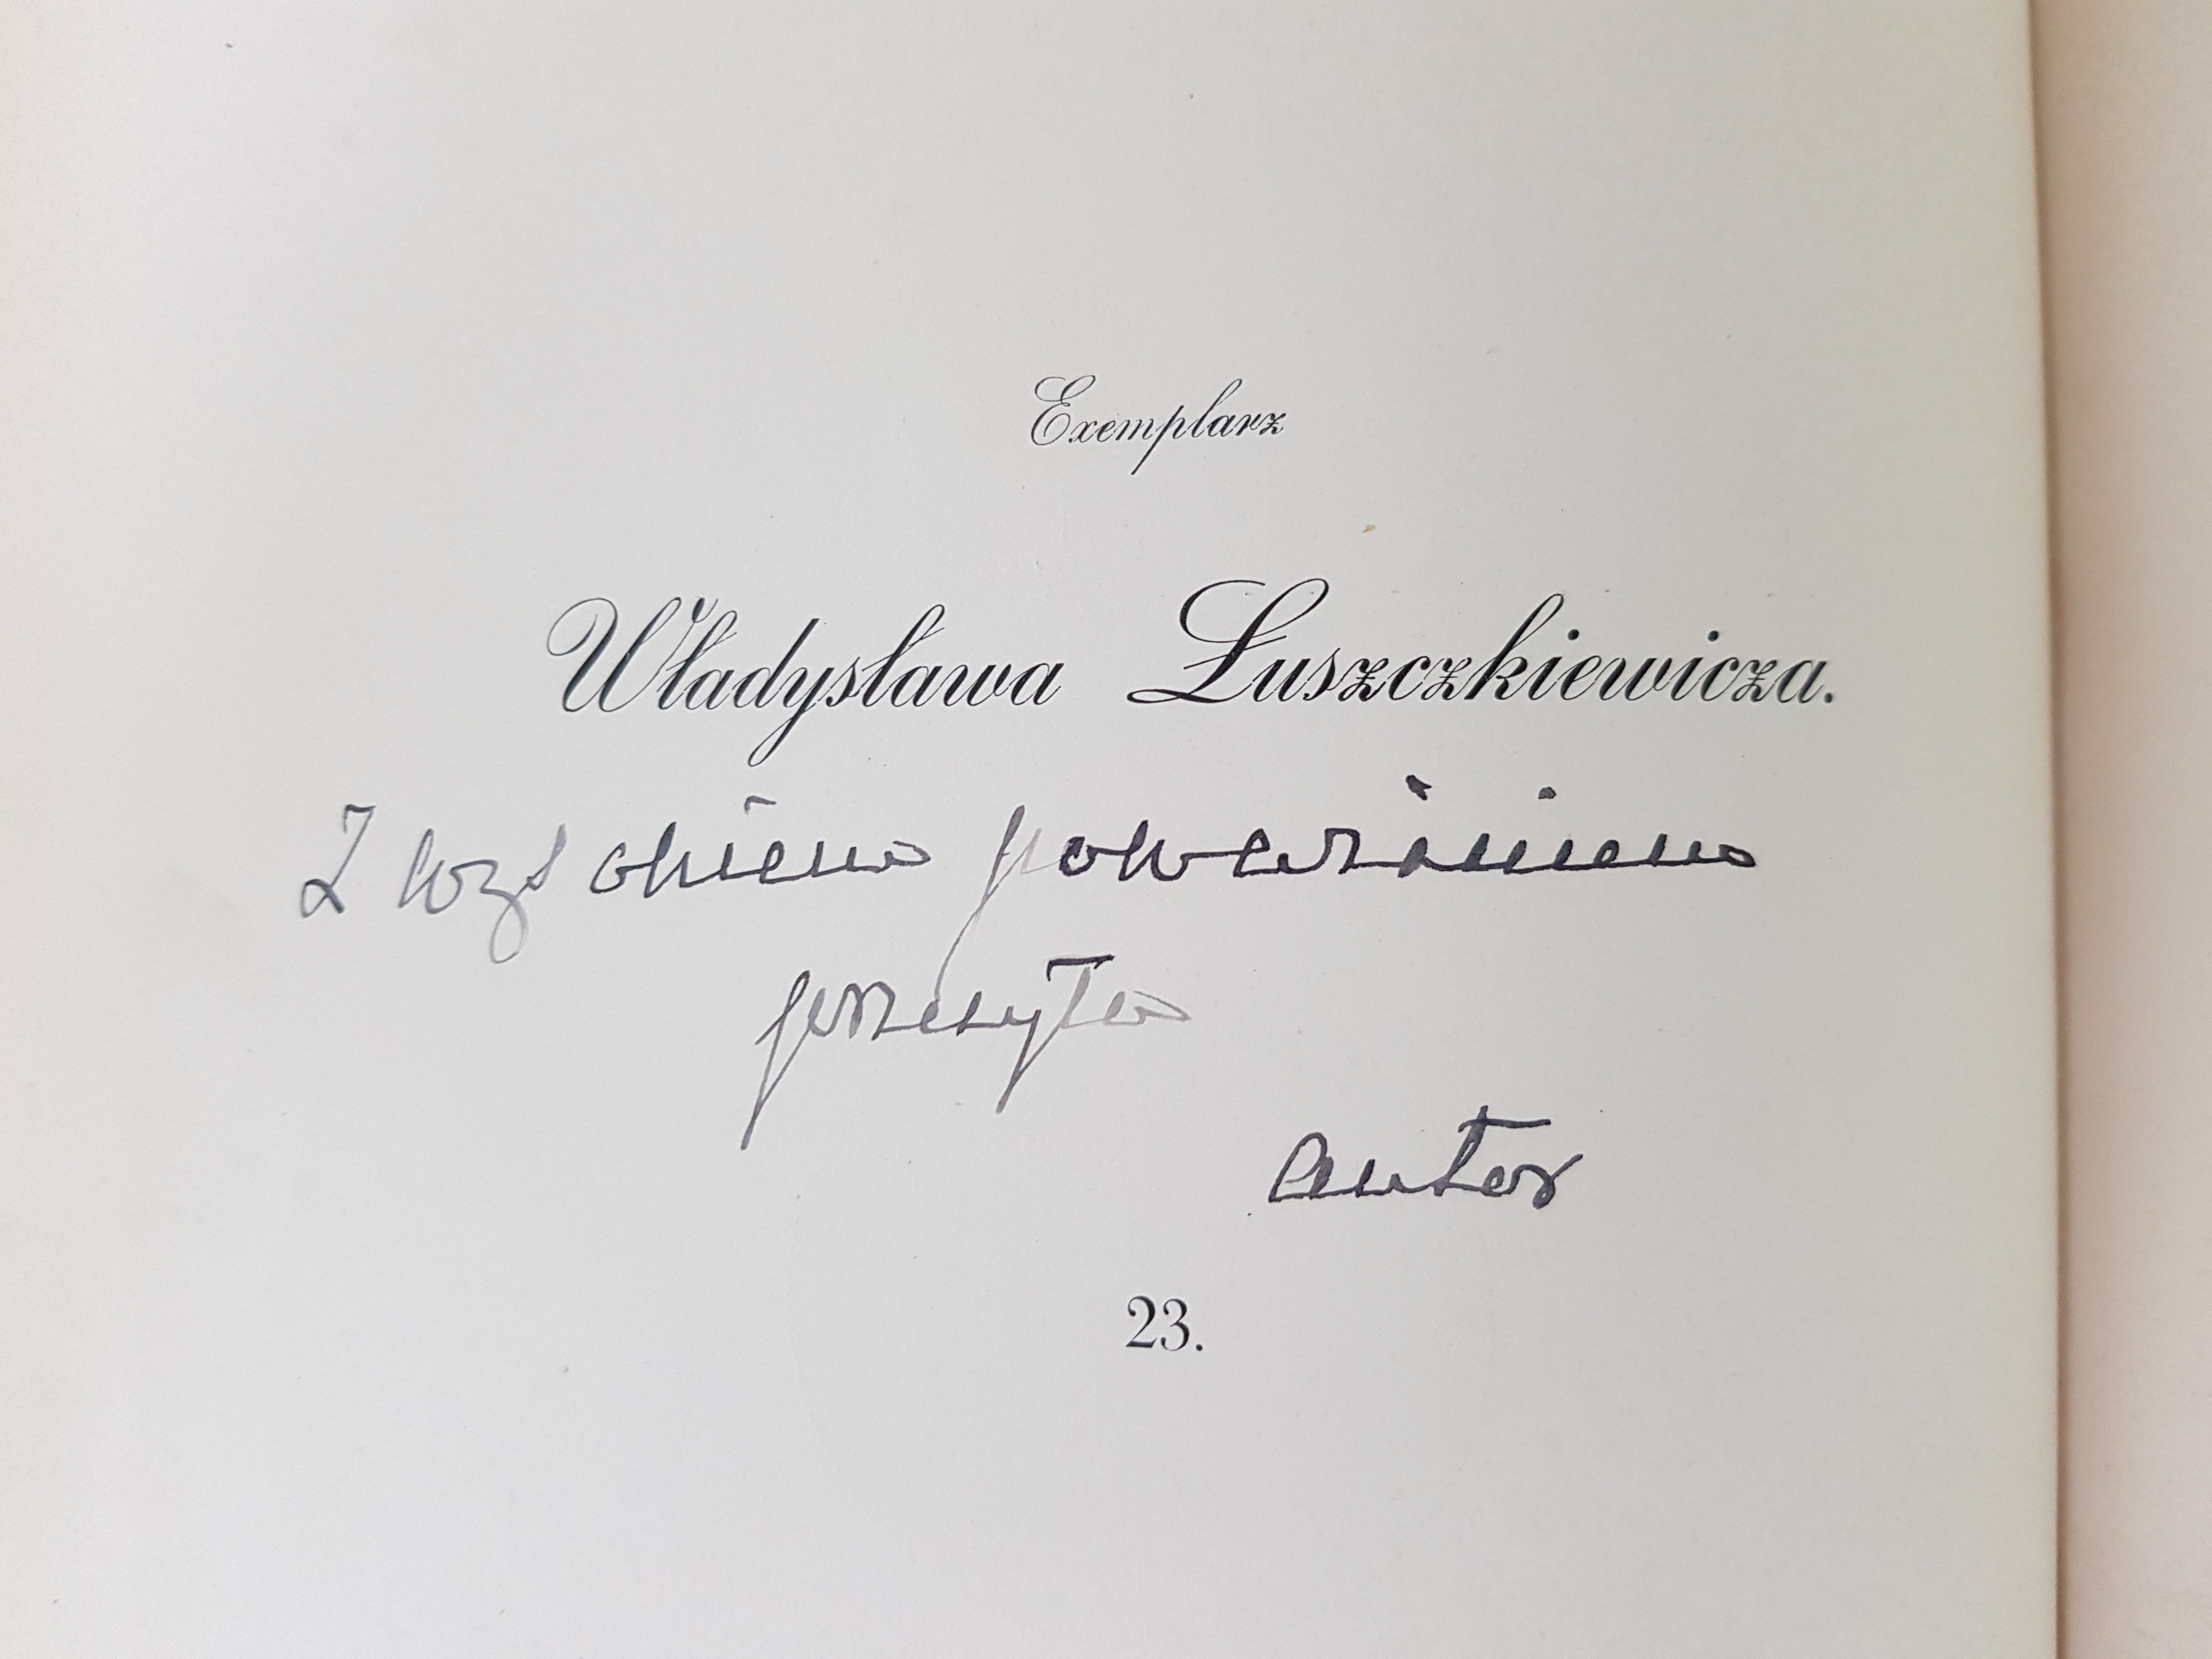 Exemplarz
Władysława Łuszczkiewicza.
Z wysokiem poważaniem
przesyła
autor
23.